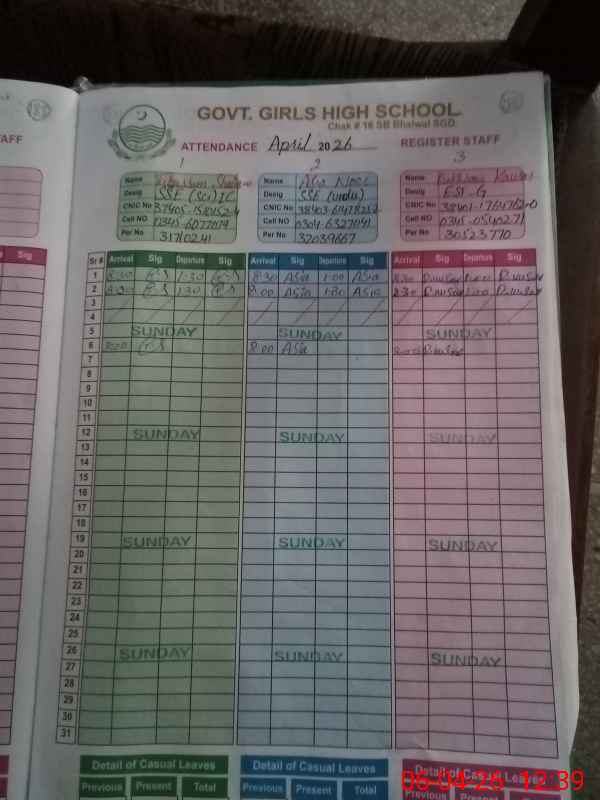 AFF
GOVT. GIRLS HIGH SCHOOL
Chak # 16 SB Bhalwal SGD.
ATTENDANCE April 2026 REGISTER STAFF
1 2 3
Name
Desig SSE (Sci) IC
CNIC No
Cell NO 0345-6077079
Per No 31710241
Name Asia Noor
Desig SSE (urdu)
CNIC No 38403-6147825-2
Cell NO 0304-6327041
Per No 32039667
Name
Desig ESI-G
CNIC No 38401-1769762-0
Cell NO 0345-0540271
Per No 30523770
Sig
Sr # Arrival Sig Departure Sig Arrival Sig Departure Sig Arrival Sig Departure Sig
1 8:30 1:30 8:30 Asia 1:00 Asia 8:30
2 8:30 1:30 8:00 Asia 1:30 Asia 8:30
3
4
5 SUNDAY SUNDAY SUNDAY
6 8:00 8:00 Asia 8:00
7
8
9
10
11
12 SUNDAY SUNDAY SUNDAY
13
14
15
16
17
18
19 SUNDAY SUNDAY SUNDAY
20
21
22
23
24
25
26 SUNDAY SUNDAY SUNDAY
27
28
29
30
31
Detail of Casual Leaves Detail of Casual Leaves Detail of Casual Leaves
Previous Present Total Previous Present Total Previous Present Total
06-04-26 12:39